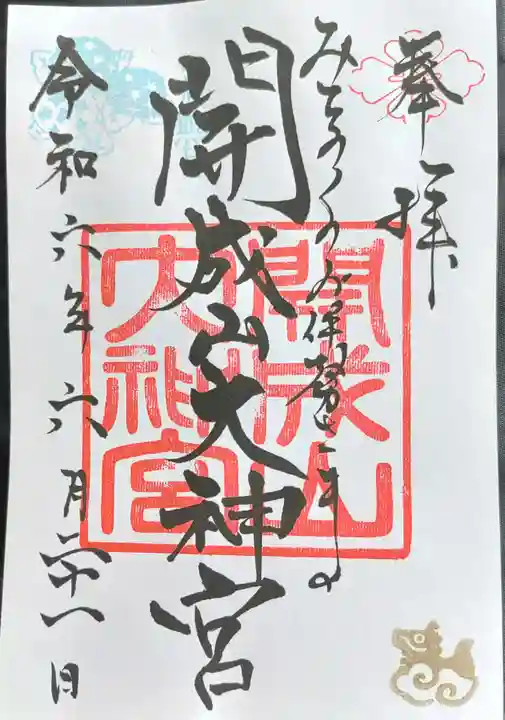 奉拝
みちのくの 伊勢
開成山大神宮
令和六年六月二十一日
開成山
大神宮